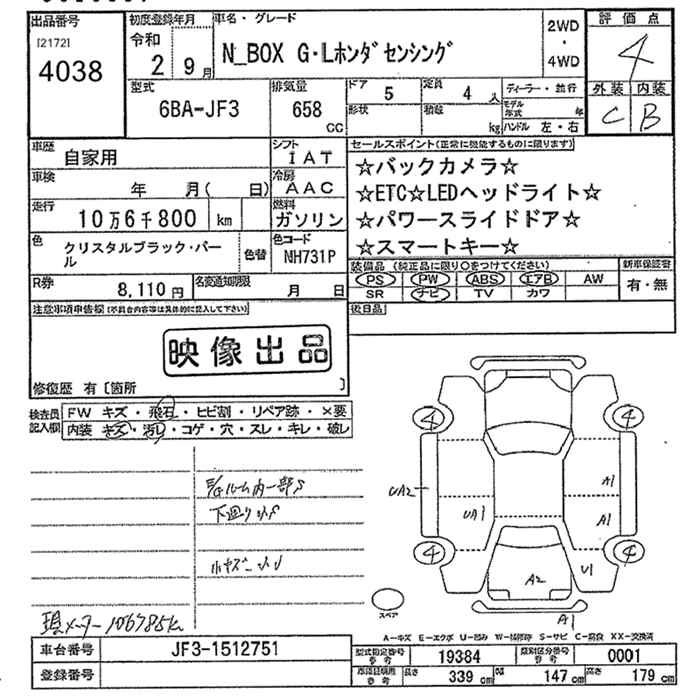 出品番号
[2172]
4038
初度登録年月
令和
2 9月
車名・グレード
N_BOX G・Lホンダセンシング
2WD
・
4WD
評価点
4
外装 内装
C B
型式
6BA-JF3
排気量
658
CC
ドア
5
定員
4 人
形状
積載
kg
ディーラー・並行
モデル年式 年
ハンドル 左・右
車歴
自家用
シフト
IAT
車検
年 月( 日)
冷房
AAC
走行
10万6千800 km
燃料
ガソリン
色
クリスタルブラック・パール
色替
色コード
NH731P
R券
8,110円
名変通知期限
月 日
セールスポイント(正常に機能するものに限ります)
☆バックカメラ☆
☆ETC☆LEDヘッドライト☆
☆パワースライドドア☆
☆スマートキー☆
装備品(純正品に限り○をつけてください)
PS PW ABS エアB AW
SR ナビ TV カワ
新車保証書
有・無
後日品
注意事項申告欄(不具合内容等は具体的に記入して下さい)
映像出品
修復歴 有〔箇所 〕
検査員記入欄
FW キズ・飛石・ヒビ割・リペア跡・×要
内装 キズ・汚レ・コゲ・穴・スレ・キレ・破レ
下廻り
現メーター106785k
4 4
UA2
UA1
A1
A1
4 4
U1
A2
A1
スペア
A-キズ E-エクボ U-凹み W-補修跡 S-サビ C-腐食 XX-交換済
車台番号
JF3-1512751
登録番号
型式指定番号 参考
19384
類別区分番号 参考
0001
車両証明用 参考
長さ 339 cm
幅 147 cm
高さ 179 cm